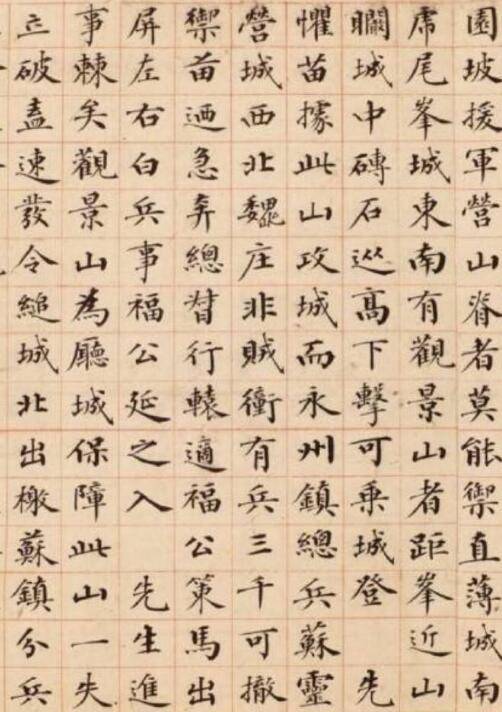 園坡援軍營山脊者莫能禦直薄城南
虎尾峯城東南有觀景山者距峯近山
瞰城中磚石巡高下擊可乗城登 先
懼苗據此山攻城而永州鎮總兵蘇靈
營城西北魏庄非賊衝有兵三千可撤
禦苗迺急弃總督行轅適福公策馬出
屏左右白兵事福公延之入 先生進
事棘矣觀景山為廳城保障此山一失
立破盍速發令縋城北出檄蘇鎮分兵